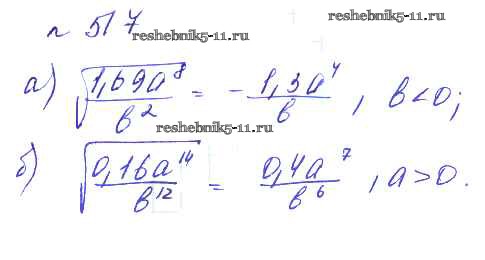 n 517
reshebnik5-11.ru
reshebnik5-11.ru
а) √(1,69a⁸/b²) = -1,3a⁴/b, b<0;
reshebnik5-11.ru
б) √(0,16a¹⁴/b¹²) = 0,4a⁷/b⁶, a>0.